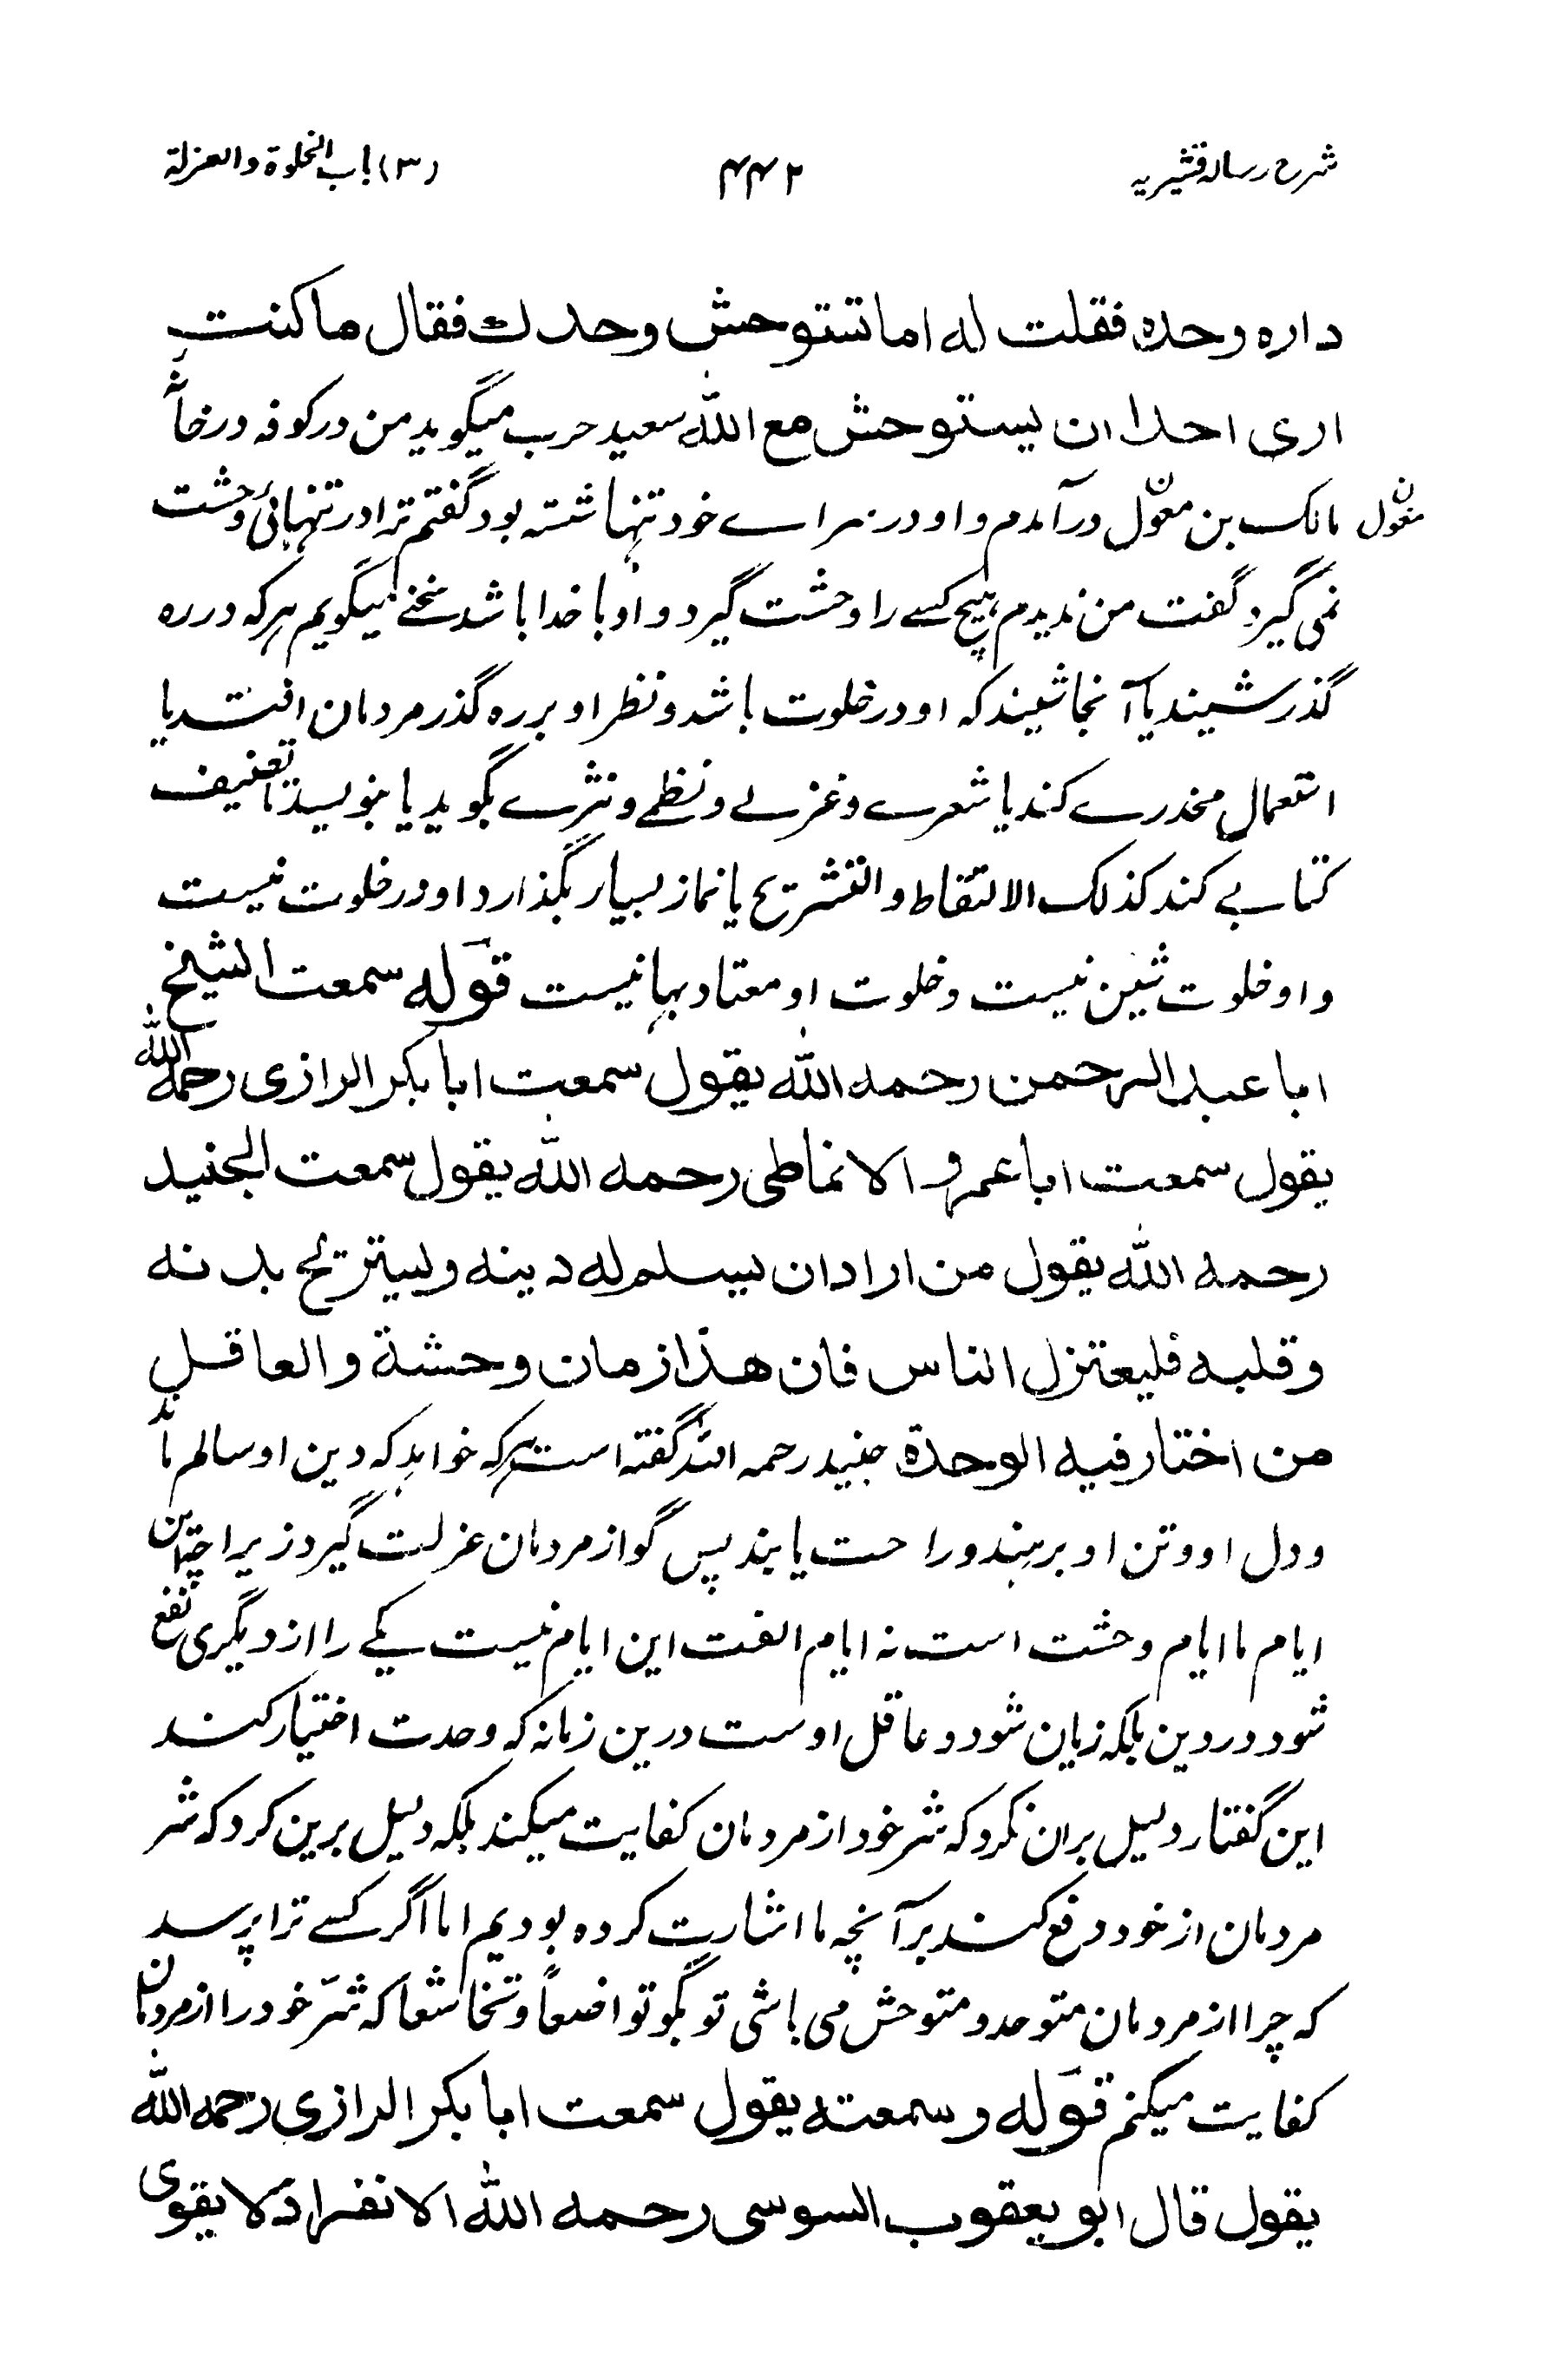 شرح رسالہ قشیریہ
۴۴۲
(۳) باب الخلوة والعزلة
داره وحده فقلت له اما تستوحش وحدك فقال ما كنت
ارى احدا ان يستوحش مع الله سعید حرب میگوید من در کوفہ در خانۂ
مالک بن مغول درآمدم و او در سرائے خود تنہا نشستہ بود گفتم ترا در تنہائی وحشت
مغول ن
نمی گیرد گفت من ندیدم ہیچ کسے را وحشت گیرد و او با خدا باشد سخنے میگویم ہر کہ در رہ
گذر نشیند یا آنجا نشیند کہ او در خلوت باشد و نظر او بر رہ گذر مردمان افتد یا
استعمال مخدرے کند یا شعرے و غزلے و نظمے و نثرے بگوید یا بنویسد تا تصنیف
کتابے کند کذلک الالتقاط والتشریح یا نماز بسیار بگذارد او در خلوت نیست
و او خلوت نشین نیست و خلوت او معتاد بہا نیست قوله سمعت الشيخ
ابا عبد الرحمن رحمه الله يقول سمعت ابا بكر الرازى رحمه الله
يقول سمعت ابا عمرو الانماطى رحمه الله يقول سمعت الجنيد
رحمه الله يقول من اراد ان يسلم له دينه ويستريح بدنه
وقلبه فليعتزل الناس فان هذا زمان وحشة والعاقل
من اختار فيه الوحدة جنید رحمہ اللہ گفتہ است ہر کہ خواہد کہ دین او سالم ماند
و دل او و تن او برہند و راحت یابند پس گو از مردمان عزلت گیرد زیرا چہ این
ایام ما ایام وحشت است نہ ایام الفت این ایام نیست یکے را از دیگری نفع
شود در دین بلکہ زیان شود و عاقل اوست درین زمانہ کہ وحدت اختیار کند
این گفتار دلیل بران نکرد کہ شر خود از مردمان کفایت میکند بلکہ دلیل برین کرد کہ شر
مردمان از خود دفع کند برآنچہ ما اشارت کردہ بودیم اما اگر کسے ترا پرسد
کہ چرا از مردمان متوحد و متوحش می باشی تو بگو تواضعاً و تخاشعا کہ شر خود را از مردمان
کفایت میکنم قوله وسمعته يقول سمعت ابا بكر الرازى رحمه الله
يقول قال ابو يعقوب السوسى رحمه الله الانفراد لا يقوى